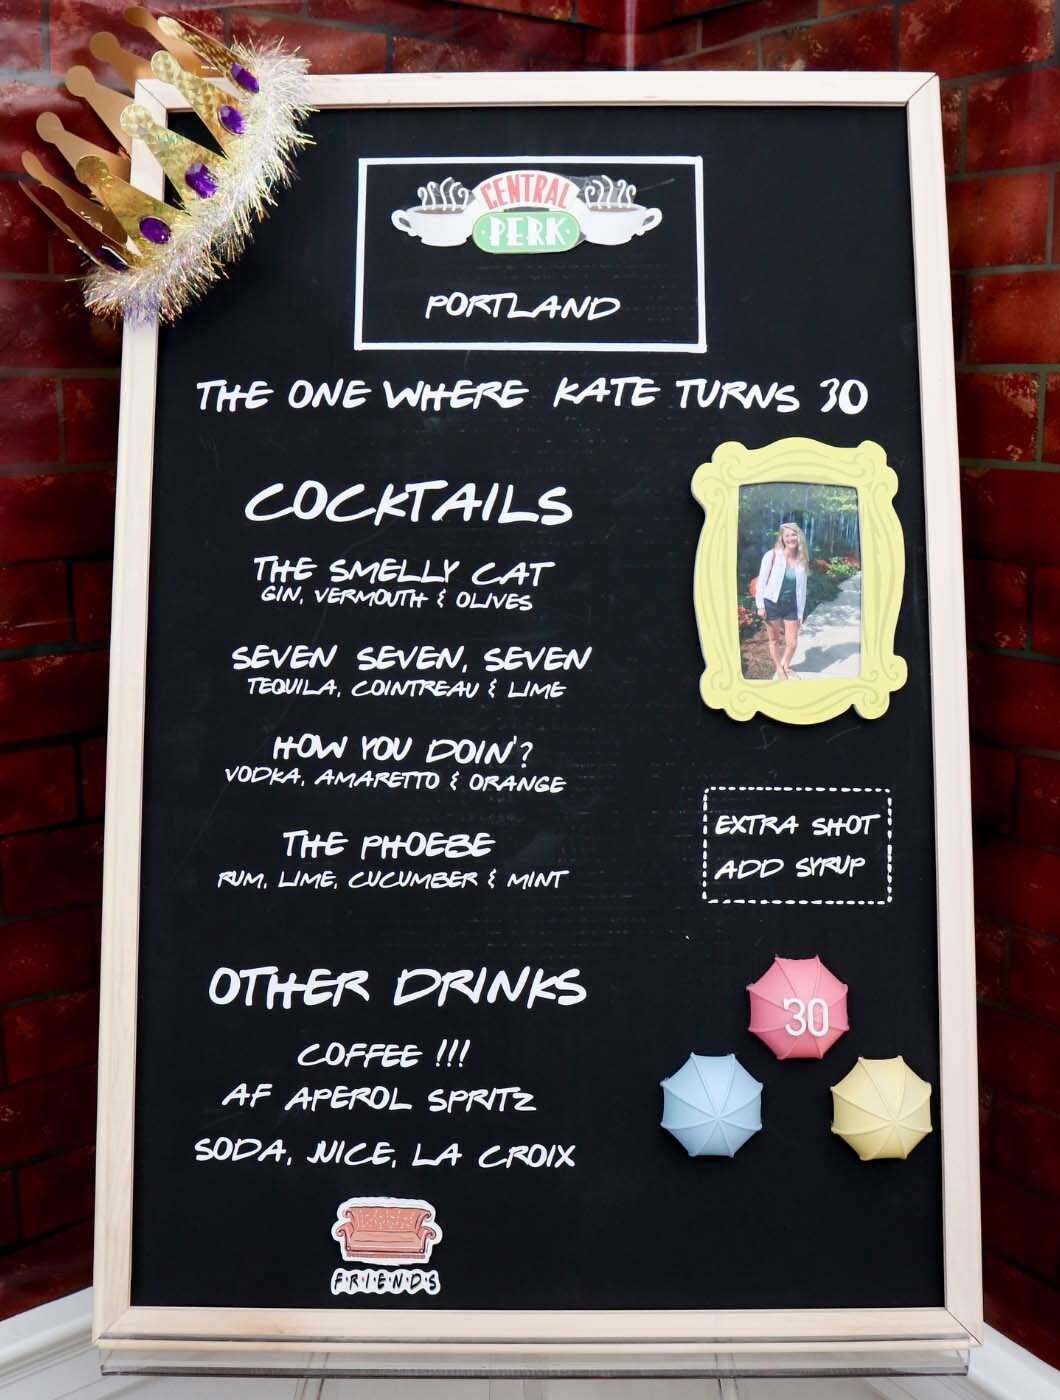 CENTRAL
PERK
PORTLAND
THE ONE WHERE KATE TURNS 30
COCKTAILS
THE SMELLY CAT
GIN, VERMOUTH & OLIVES
SEVEN SEVEN, SEVEN
TEQUILA, COINTREAU & LIME
HOW YOU DOIN'?
VODKA, AMARETTO & ORANGE
THE PHOEBE
RUM, LIME, CUCUMBER & MINT
EXTRA SHOT
ADD SYRUP
OTHER DRINKS
COFFEE !!!
AF APEROL SPRITZ
SODA, JUICE, LA CROIX
30
F·R·I·E·N·D·S